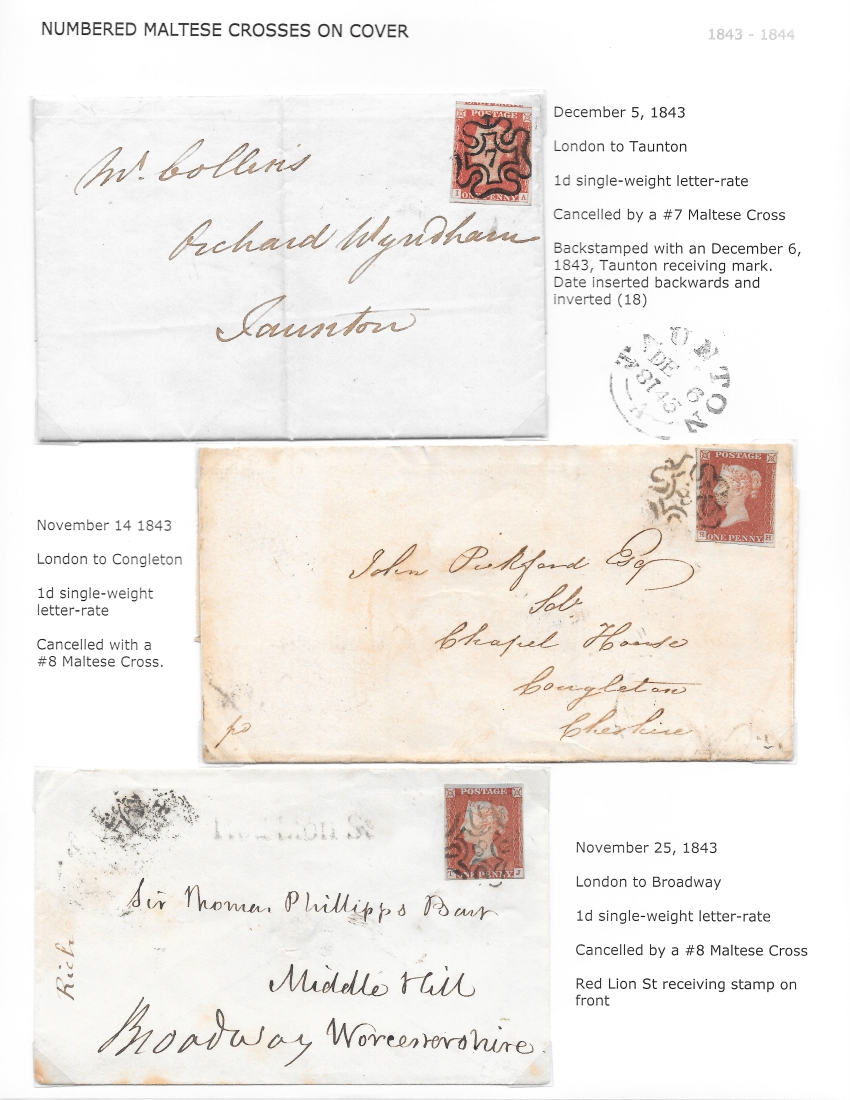 NUMBERED MALTESE CROSSES ON COVER
1843 - 1844
Mr. Collins
Orchard Wyndham
Taunton
POSTAGE
7
I A
ONE PENNY
December 5, 1843
London to Taunton
1d single-weight letter-rate
Cancelled by a #7 Maltese Cross
Backstamped with an December 6,
1843, Taunton receiving mark.
Date inserted backwards and
inverted (18)
TAUNTON
DE 6
A
November 14 1843
London to Congleton
1d single-weight
letter-rate
Cancelled with a
#8 Maltese Cross.
POSTAGE
8
ONE PENNY
John Pickford Esq
Solr
Chapel House
Congleton
Cheshire
pd
POSTAGE
8
ONE PENNY
Sir Thomas Phillipps Bart
Middle Hill
Broadway Worcestershire
Rich
November 25, 1843
London to Broadway
1d single-weight letter-rate
Cancelled by a #8 Maltese Cross
Red Lion St receiving stamp on
front